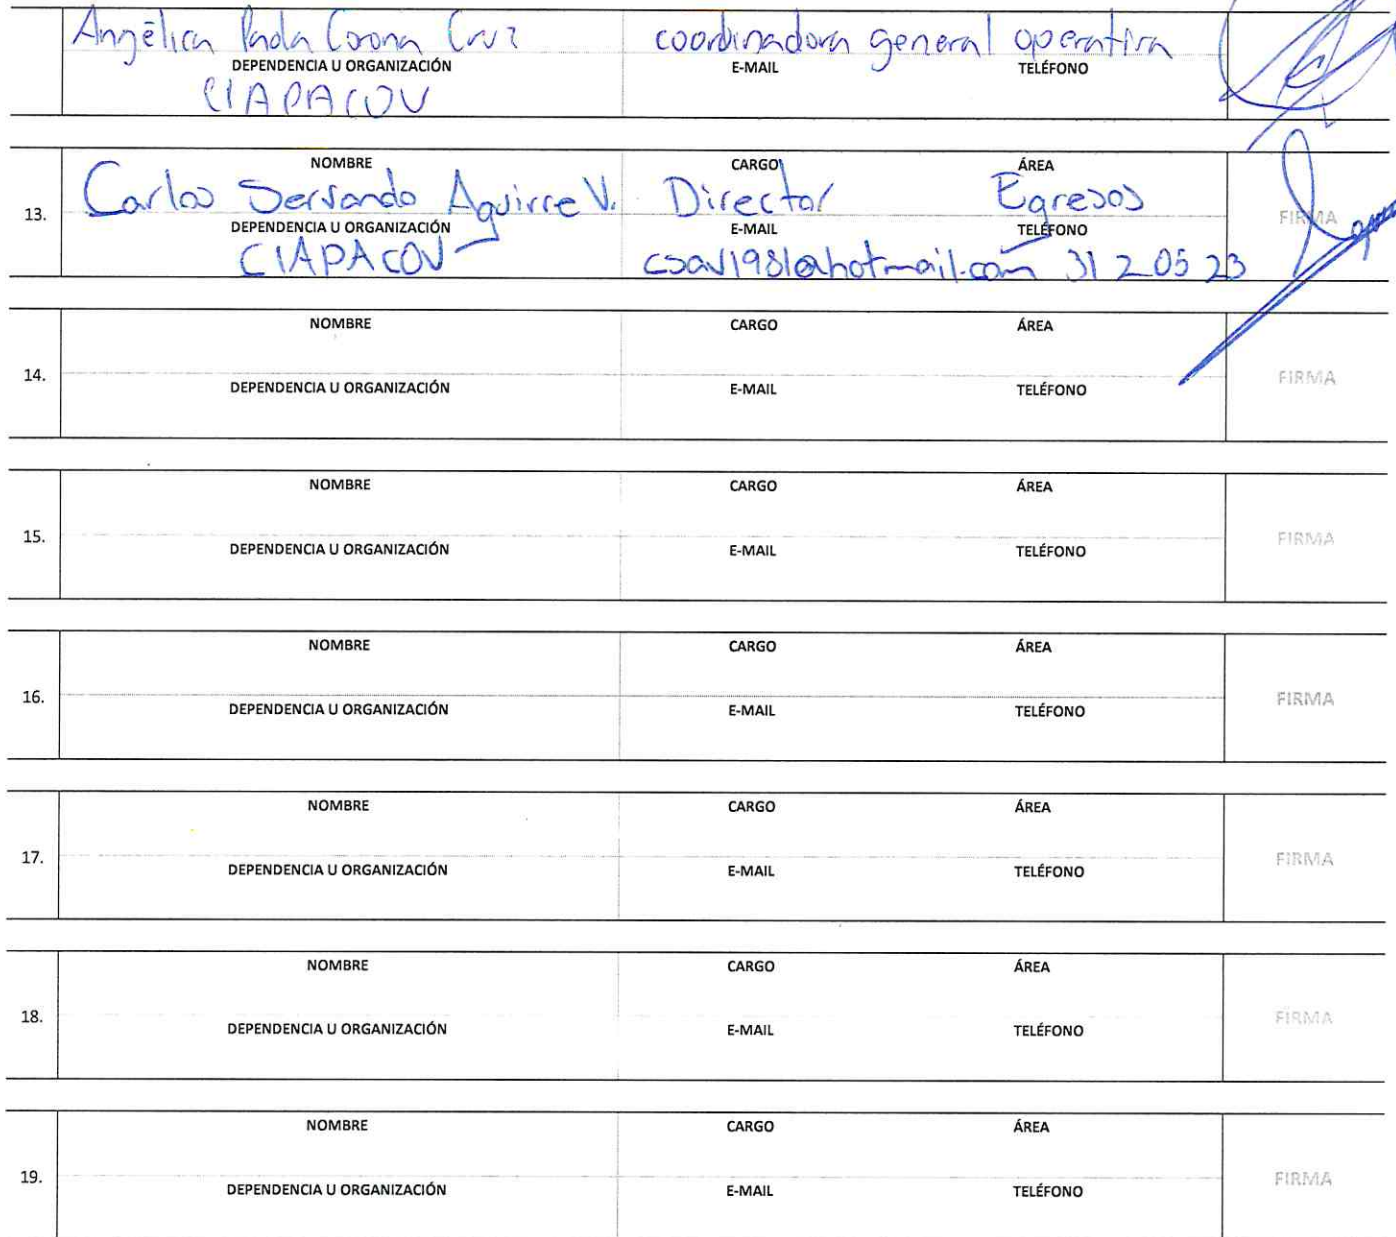 Angélica Paola Corona Cruz coordinadora general operativa
DEPENDENCIA U ORGANIZACIÓN E-MAIL TELÉFONO
CIAPACOV
NOMBRE CARGO ÁREA
Carlos Servando Aguirre V. Director Egresos
13. FIRMA
DEPENDENCIA U ORGANIZACIÓN E-MAIL TELÉFONO
CIAPACOV csav1981@hotmail.com 31 2 05 23
NOMBRE CARGO ÁREA
14. FIRMA
DEPENDENCIA U ORGANIZACIÓN E-MAIL TELÉFONO
NOMBRE CARGO ÁREA
15. FIRMA
DEPENDENCIA U ORGANIZACIÓN E-MAIL TELÉFONO
NOMBRE CARGO ÁREA
16. FIRMA
DEPENDENCIA U ORGANIZACIÓN E-MAIL TELÉFONO
NOMBRE CARGO ÁREA
17. FIRMA
DEPENDENCIA U ORGANIZACIÓN E-MAIL TELÉFONO
NOMBRE CARGO ÁREA
18. FIRMA
DEPENDENCIA U ORGANIZACIÓN E-MAIL TELÉFONO
NOMBRE CARGO ÁREA
19. FIRMA
DEPENDENCIA U ORGANIZACIÓN E-MAIL TELÉFONO